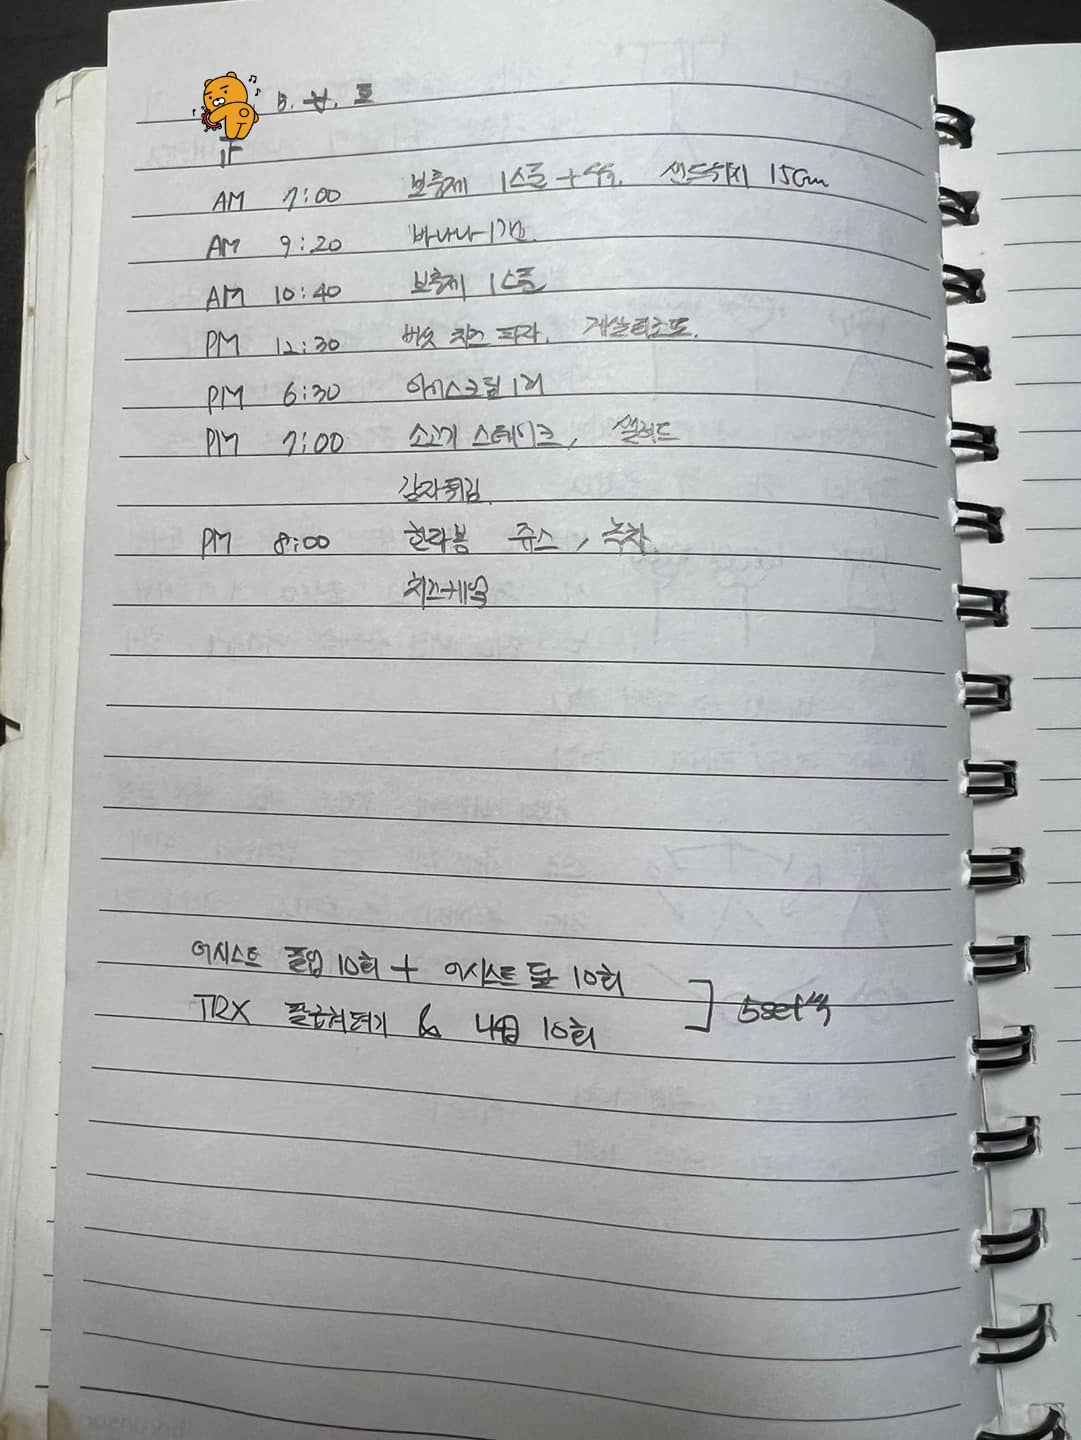 AM 7:00 보충제 1스푼 + 우유. 샌드위치 15cm
AM 9:20 바나나 1개.
AM 10:40 보충제 1스푼
PM 12:30 버섯 치즈 피자. 게살리조또.
PM 6:30 아이스크림 1개
PM 7:00 소고기 스테이크, 샐러드
감자튀김.
PM 8:00 한라봉 쥬스, 녹차
치즈케익
어시스트 풀업 10회 + 어시스트 딥 10회
TRX 팔굽혀펴기 & 니업 10회 5set